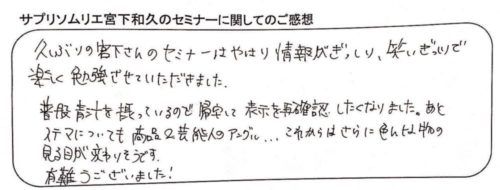 サプリソムリエ宮下和久のセミナーに関してのご感想
久しぶりの宮下さんのセミナーはやはり情報ぎっしり、笑いぎっしりで
楽しく勉強させていただきました。
普段青汁を摂っているので帰宅して表示を再確認したくなりました。あと
ステマについても商品と芸能人のアングル...これからはさらに色んな物の
見る目が変わりそうです。
有難うございました!